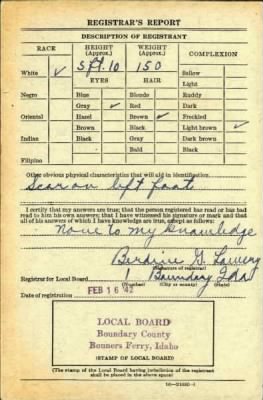 REGISTRAR'S REPORT
DESCRIPTION OF REGISTRANT
RACE HEIGHT (Approx.) WEIGHT (Approx.) COMPLEXION
White ✓ 5 ft. 10 150 Sallow
EYES HAIR Light
Negro Blue Blonde Ruddy
Gray ✓ Red Dark
Oriental Hazel Brown ✓ Freckled
Brown Black Light brown ✓
Indian Black Gray Dark brown
Bald Black
Filipino
Other obvious physical characteristics that will aid in identification
Scar on left foot
I certify that my answers are true; that the person registered has read or has had
read to him his own answers; that I have witnessed his signature or mark and that
all of his answers of which I have knowledge are true, except as follows:
None to my knowledge
Berdine G. Lowery
(Signature of registrar)
Registrar for Local Board 1 Boundary Ida
(Number) (City or county) (State)
Date of registration FEB 16 '42
LOCAL BOARD
Boundary County
Bonners Ferry, Idaho
(STAMP OF LOCAL BOARD)
(The stamp of the Local Board having jurisdiction of the registrant
shall be placed in the above space)